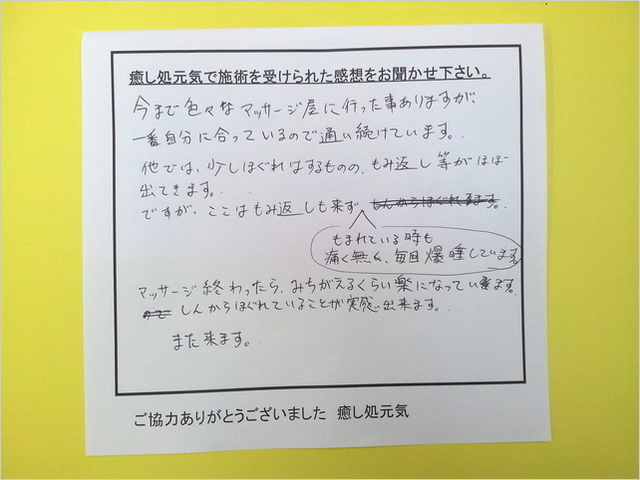 癒し処元気で施術を受けられた感想をお聞かせ下さい。
今まで色々なマッサージ屋に行った事ありますが、
一番自分に合っているので通い続けています。
他では、少しほぐれはするものの、もみ返し等がほぼ
出てきます。
ですが、ここはもみ返しも来ず、しんからほぐれてます。
もまれている時も
痛く無く、毎回爆睡しています。
マッサージ終わったら、みちがえるくらい楽になっています。
しんからほぐれていることが実感出来ます。
また来ます。
ご協力ありがとうございました 癒し処元気